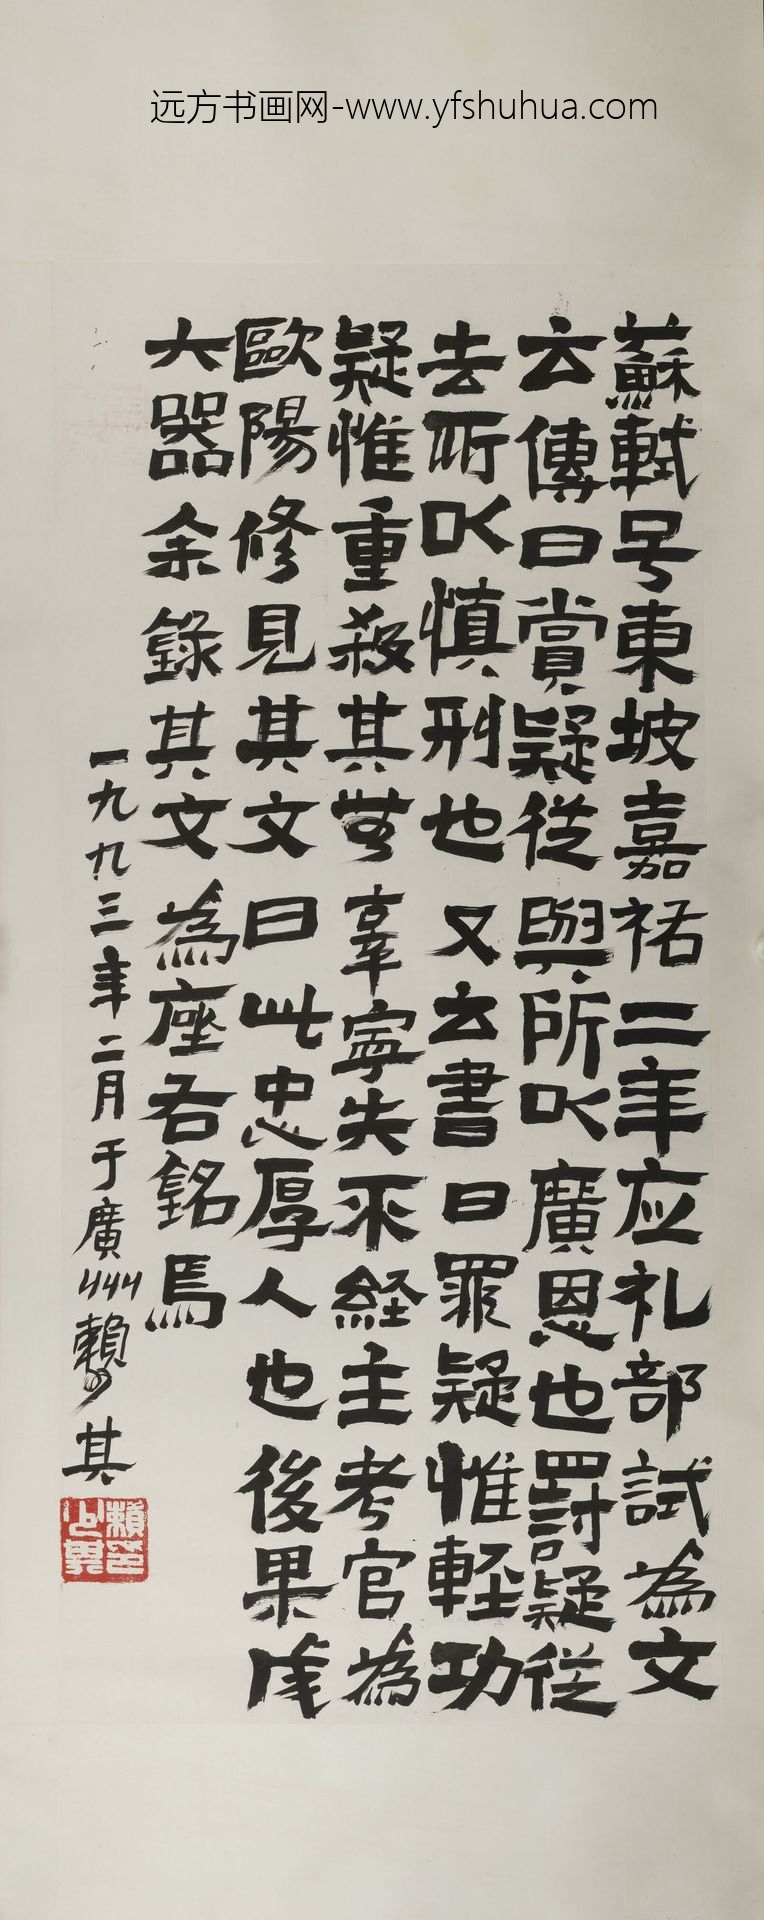 远方书画网-www.yfshuhua.com
蘇軾号東坡嘉祐二年应礼部試為文
云傳曰賞疑從與所以廣恩也罰疑從
去所以慎刑也又云書曰罪疑惟軽功
疑惟重殺其無辜寧失不経主考官為
歐陽修見其文曰此忠厚人也後果成
大器余錄其文為座右銘焉
一九九三年二月于廣州賴少其
賴少其印